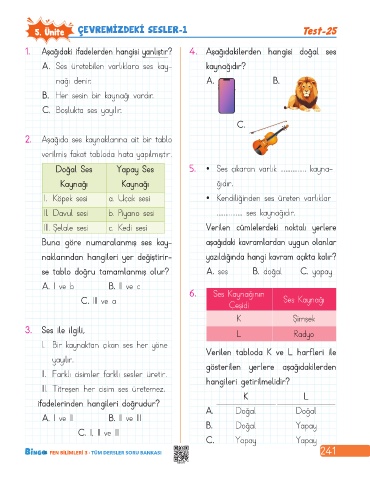 5. Ünite
ÇEVREMİZDEKİ SESLER-1
Test-25
1. Aşağıdaki ifadelerden hangisi yanlıştır?
A. Ses üretebilen varlıklara ses kay-
nağı denir.
B. Her sesin bir kaynağı vardır.
C. Boşlukta ses yayılır.
2. Aşağıda ses kaynaklarına ait bir tablo
verilmiş fakat tabloda hata yapılmıştır.
Doğal Ses
Kaynağı
Yapay Ses
Kaynağı
I. Köpek sesi
a. Uçak sesi
II. Davul sesi
b. Piyano sesi
III. Şelale sesi
c. Kedi sesi
Buna göre numaralanmış ses kay-
naklarından hangileri yer değiştirir-
se tablo doğru tamamlanmış olur?
A. I ve b
B. II ve c
C. III ve a
3. Ses ile ilgili,
I. Bir kaynaktan çıkan ses her yöne
yayılır.
II. Farklı cisimler farklı sesler üretir.
III. Titreşen her cisim ses üretemez.
ifadelerinden hangileri doğrudur?
A. I ve II
B. II ve III
C. I, II ve III
4. Aşağıdakilerden hangisi doğal ses
kaynağıdır?
A.
B.
C.
5. • Ses çıkaran varlık ............... kayna-
ğıdır.
• Kendiliğinden ses üreten varlıklar
............... ses kaynağıdır.
Verilen cümlelerdeki noktalı yerlere
aşağıdaki kavramlardan uygun olanlar
yazıldığında hangi kavram açıkta kalır?
A. ses
B. doğal
C. yapay
6.
Ses Kaynağının
Çeşidi
Ses Kaynağı
K
Şimşek
L
Radyo
Verilen tabloda K ve L harfleri ile
gösterilen yerlere aşağıdakilerden
hangileri getirilmelidir?
K
L
A. Doğal
Doğal
B. Doğal
Yapay
C. Yapay
Yapay
BİNGO FEN BİLİMLERİ 3 - TÜM DERSLER SORU BANKASI
241